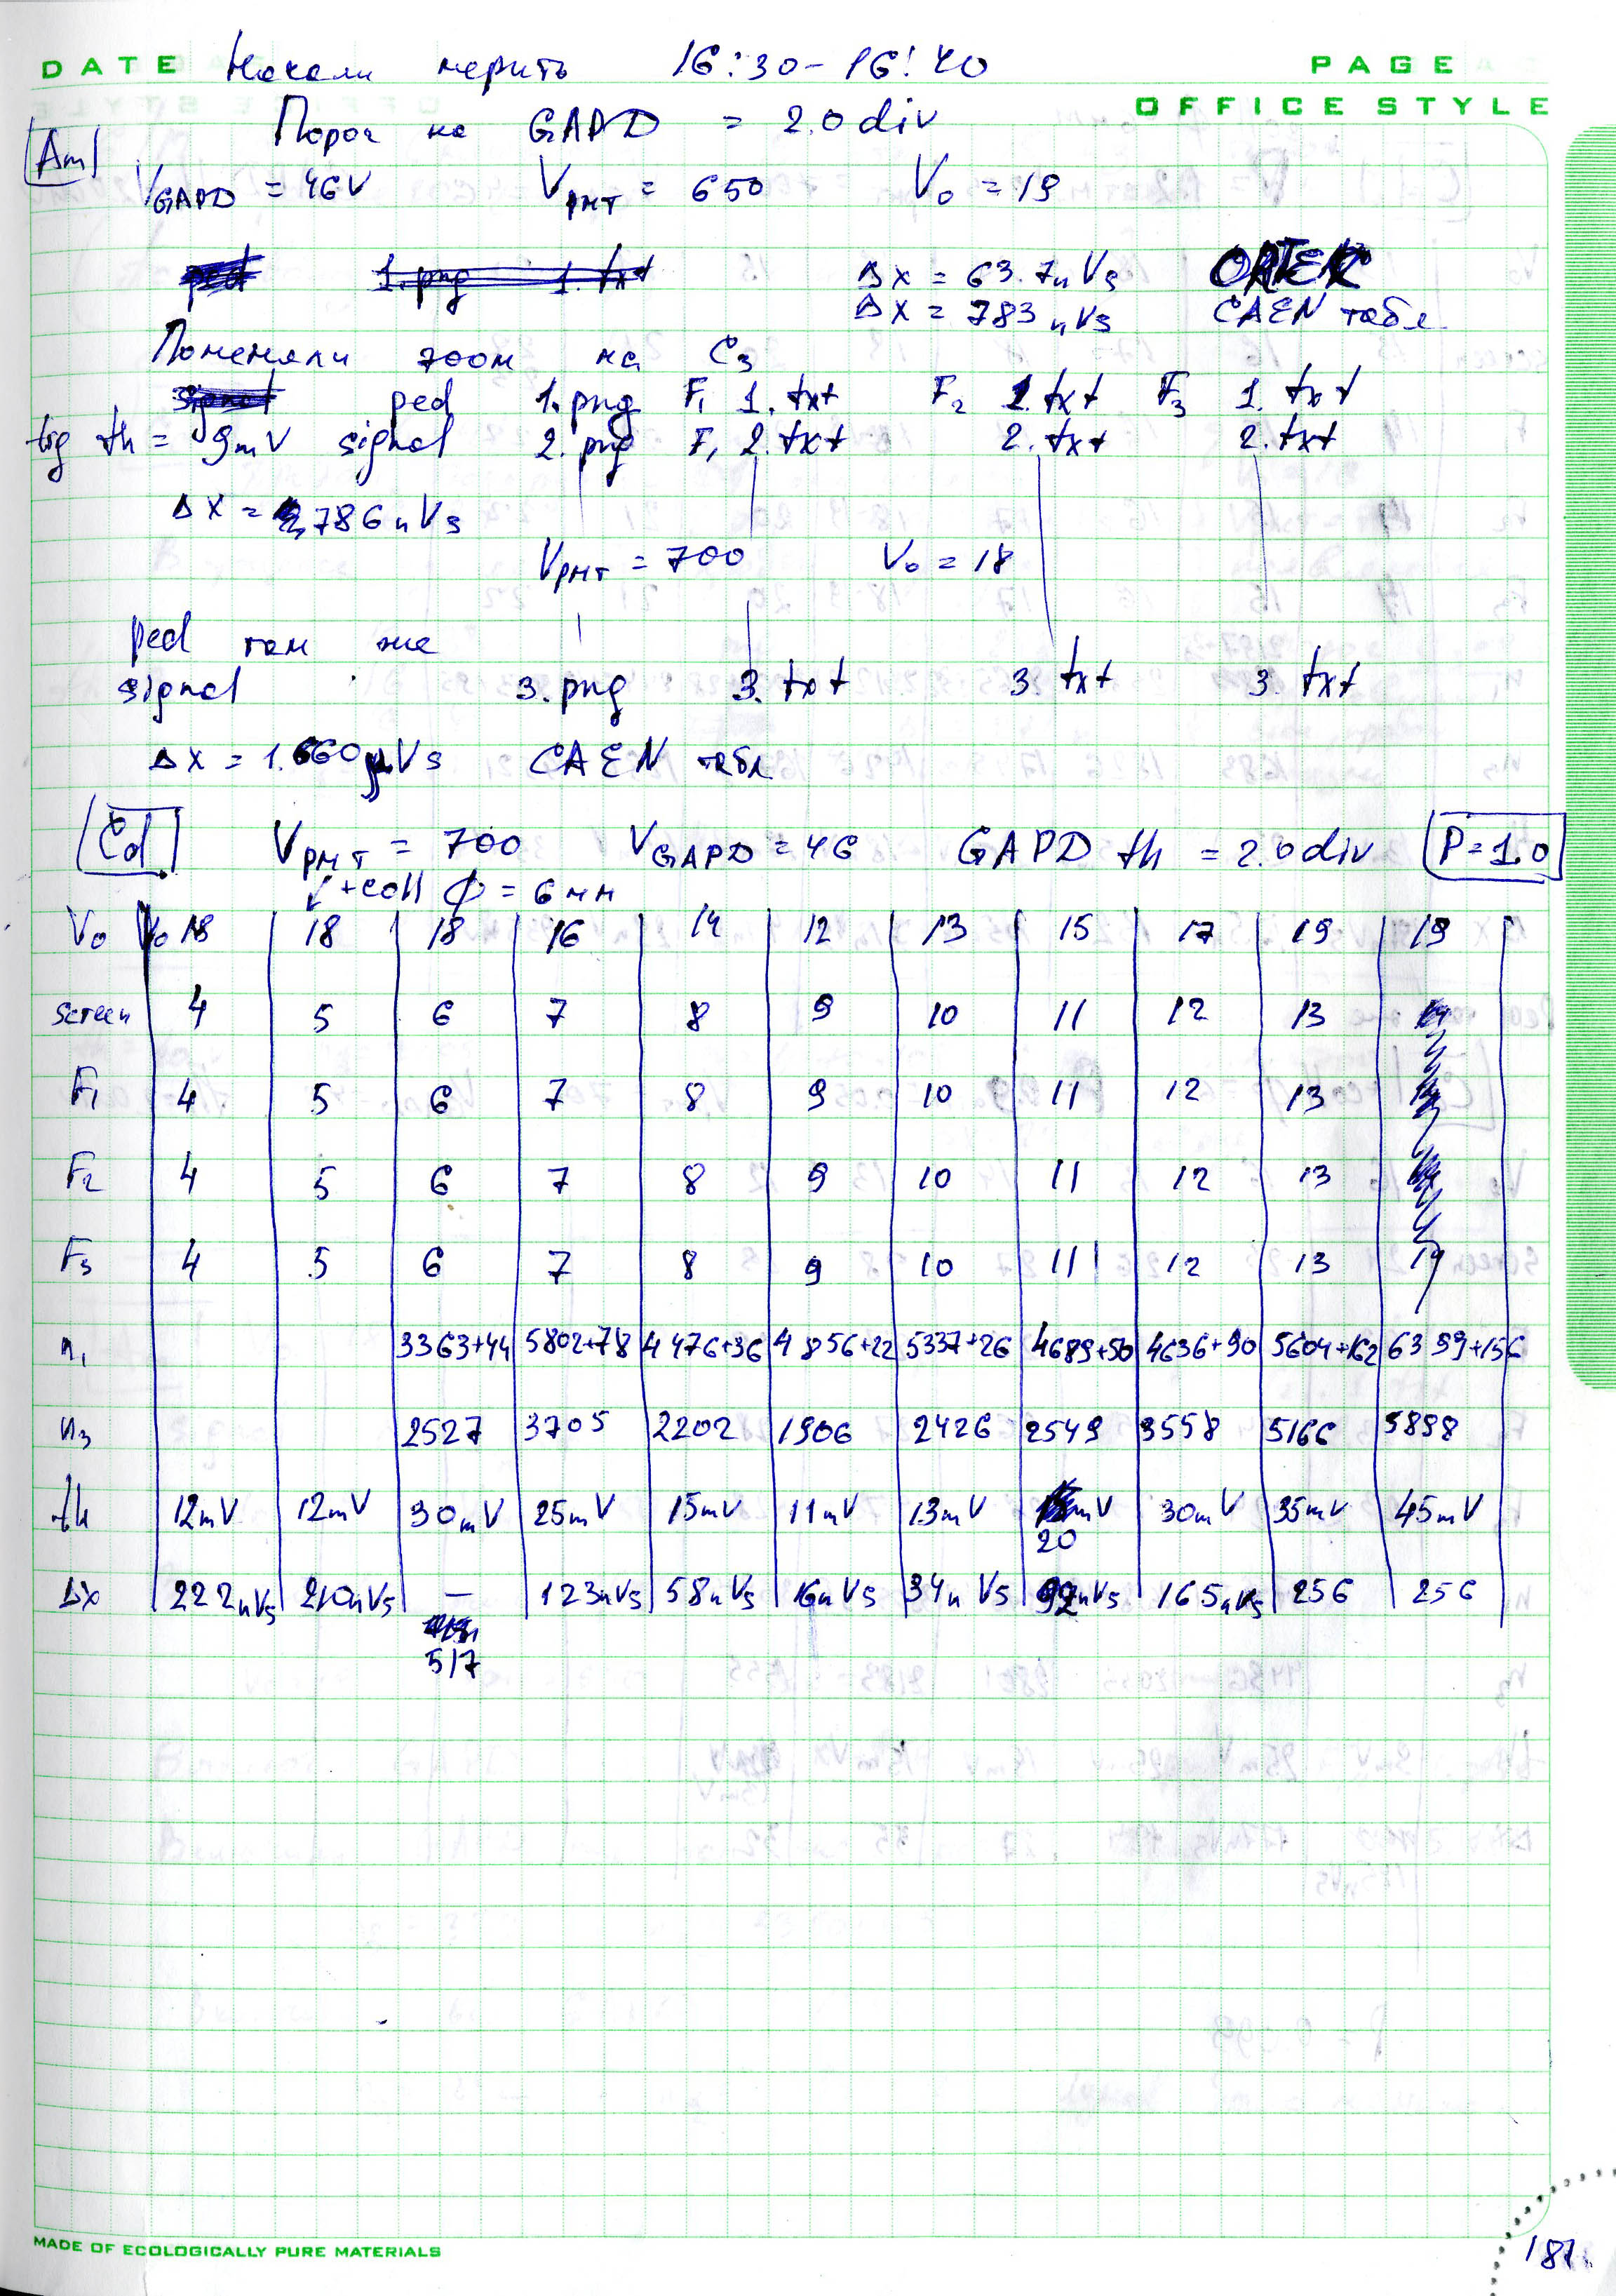 DATE Начали мерить 16:30-16:40 PAGE
OFFICE STYLE
Порог на GAPD = 2.0 div
Am
V GAPD = 46V V PMT = 650 V0 = 19
ped 1.png 1.txt Δx = 63.7nVs ORTEC
Δx = 783nVs CAEN табл
Поменяли zoom на C3
signal ped 1.png F1 1.txt F2 1.txt F3 1.txt
trig th = 9mV signal 2.png F1 2.txt 2.txt 2.txt
Δx = 786nVs
V PMT = 700 V0 = 18
ped там же
signal 3.png 3.txt 3.txt 3.txt
Δx = 1.660μVs CAEN табл
Cd V PMT = 700 V GAPD = 46 GAPD th = 2.0div P=1.0
↙+coll ϕ = 6мм
V0 V0 18 18 18 16 14 12 13 15 17 19 19
screen 4 5 6 7 8 9 10 11 12 13
F1 4 5 6 7 8 9 10 11 12 13
F2 4 5 6 7 8 9 10 11 12 13
F3 4 5 6 7 8 9 10 11 12 13 14
n1 3363+44 5802+78 4476+36 4856+22 5337+26 4689+50 4636+90 5604+162 6399+156
n3 2527 3705 2202 1906 2426 2549 3558 5166 5898
th 12mV 12mV 30mV 25mV 15mV 11mV 13mV mV 30mV 35mV 45mV
20
Δx 222nVs 210nVs — 123nVs 58nVs 16nVs 34nVs 92nVs 165nVs 256 256
517
MADE OF ECOLOGICALLY PURE MATERIALS
181